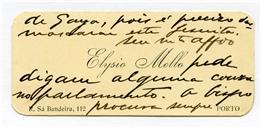 de Gaya, pois é preciso des
mascarar este
seu mto affvo
Elysio Mello pede
digam alguma cousa
no parlamento. O bispo
R. Sá Bandeira, 112 procura sempre PORTO